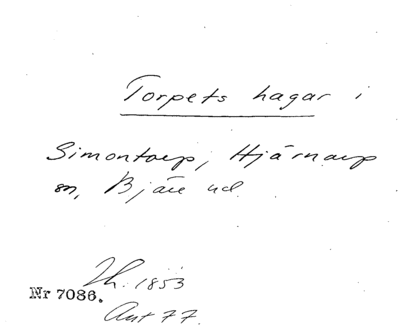 Torpets hagar i
Simontorp, Hjärnarp
sn, Bjäre hd
Th. 1853
Nr 7086.
Ant 77.